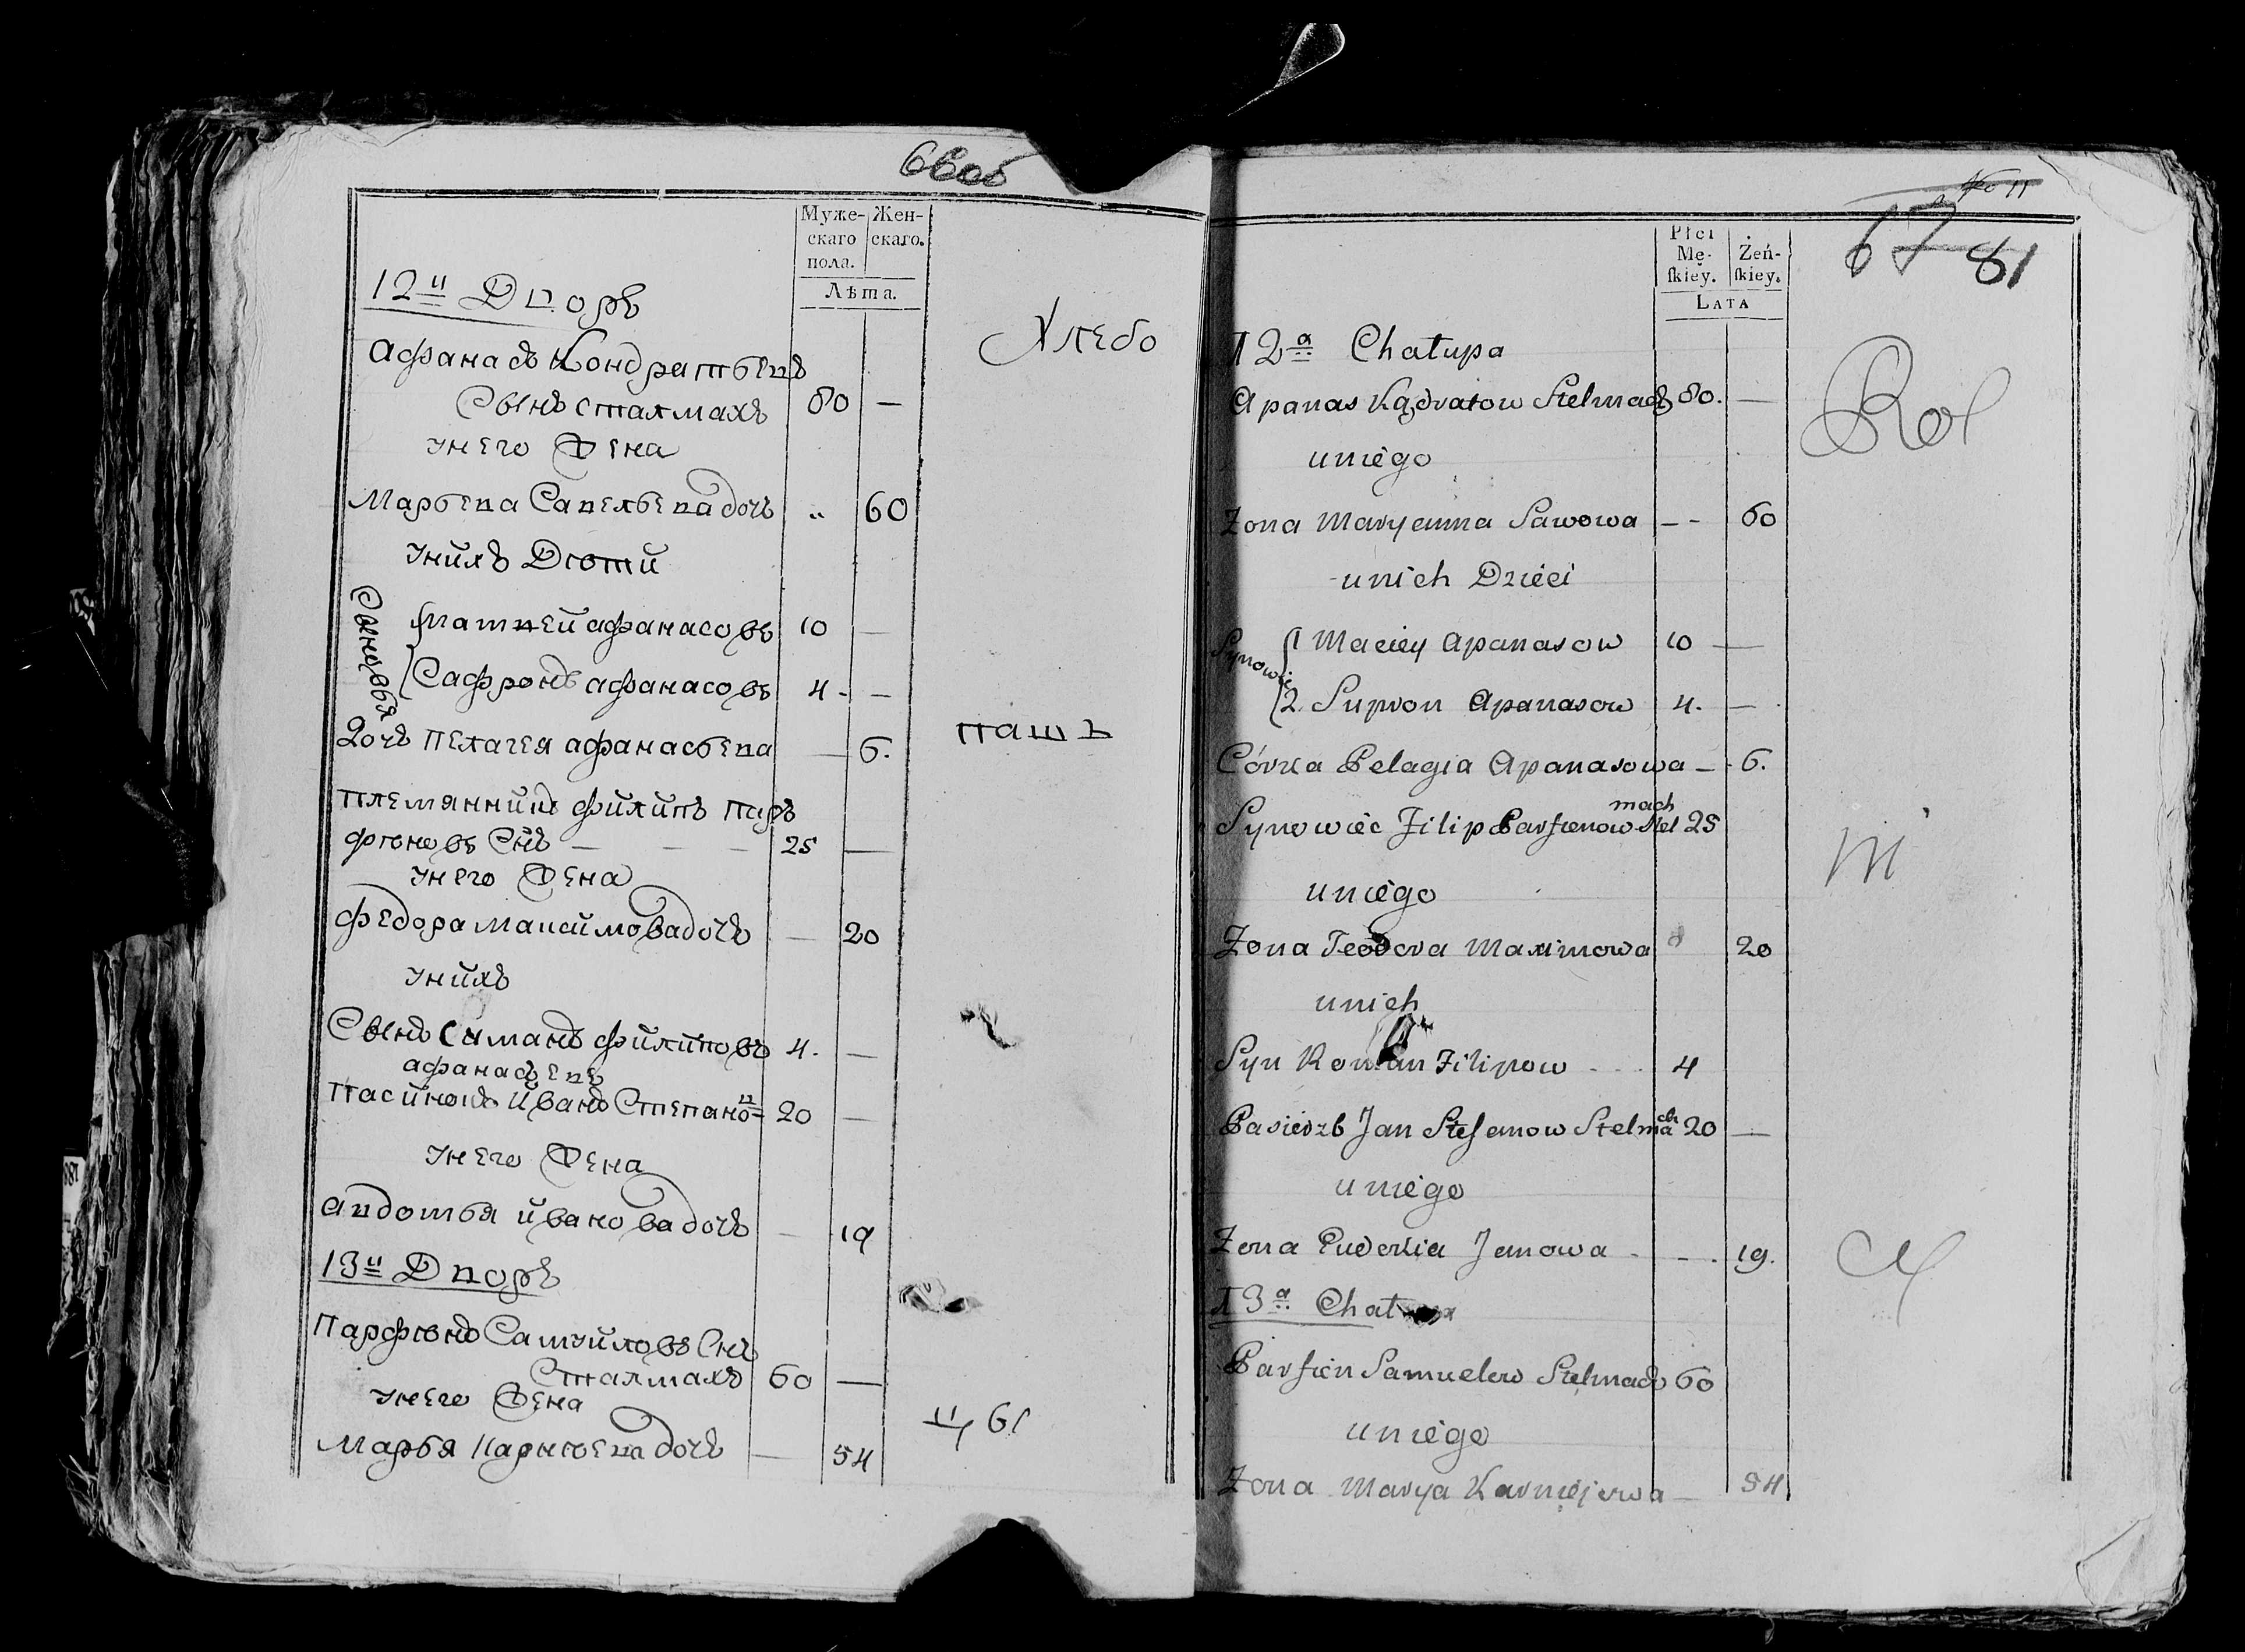 66об
Муже-
скаго
пола.
Жен-
скаго.
Лѣта.
12й Дворъ
Хлебо
Афанасъ Кондратьевъ
Сынъ сталмахъ 80 —
унего Жена
Марьева Савельева дочь " 60
унихъ Дѣти
Сыновья
Матвей афанасовъ 10 —
Сафронъ афанасовъ 4. —
Дочь Пелагея афанасьева — 6.
паш
племянникъ филипъ Пар
фѣновъ Снъ — — — 25 —
унего Жена
Федора максимова дочь — 20
унихъ
Сынъ Симанъ филиповъ 4. —
афанасьевъ
Пасинокъ Иванъ Степано=въ 20 —
унего Жена
авдотья ивановa дочь — 19
13й Дворъ
Парфѣнъ Самуйловъ Снъ
Сталмахъ 60 —
унего Жена
Марья Карнѣева дочь — 54
ц 61
Płci
Mę-
skiey.
Żeń-
skiey.
LATA
67 81
12a Chałupa
Rol
Apanas Kądratow Stelmach 80. —
uniego
Zona Maryanna Sawowa — - 60
unich Dzieci
Synowie
1 Maciey Apanasow 10 —
2. Supron Apanasow 4. —
Córka Pelagia Apanasowa — . 6.
mach
Synowiec Filip Parfienow Stel 25
ni
uniego
Zona Teodora Maximowa 20
unich
Syn Roman Filipow - . . . 4
Pasierzb Jan Stefanow Stelmach 20 —
uniego
Zona Eudokia Janowa - - . 19.
13a Chałupa
Parfien Samuelow Stelmach 60
uniego
Zona Marya Karniejewa — 54